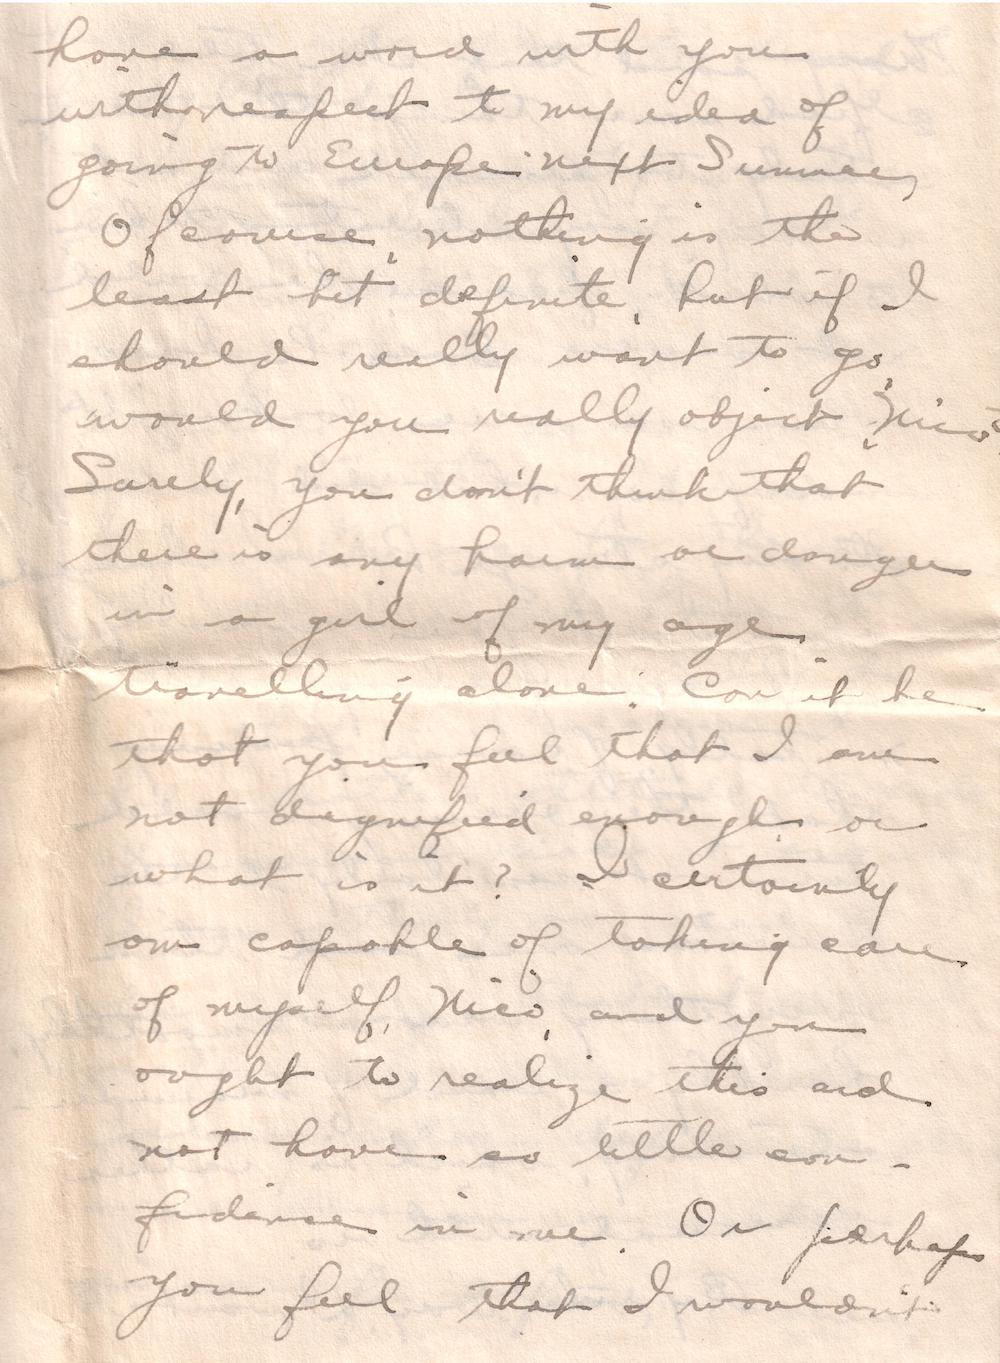 have a word with you
with respect to my idea of
going to Europe next Summer,
Of course, nothing is the
least bit definite, but if I
should really want to go,
would you really object, Nico?
Surely, you don't think that
there is any harm or danger
in a girl of my age
travelling alone. Can it be
that you feel that I am
not dignified enough or
what is it? I certainly
am capable of taking care
of myself, Nico, and you
ought to realize this and
not have so little con-
fidence in me. Or perhaps
you feel that I wouldn't